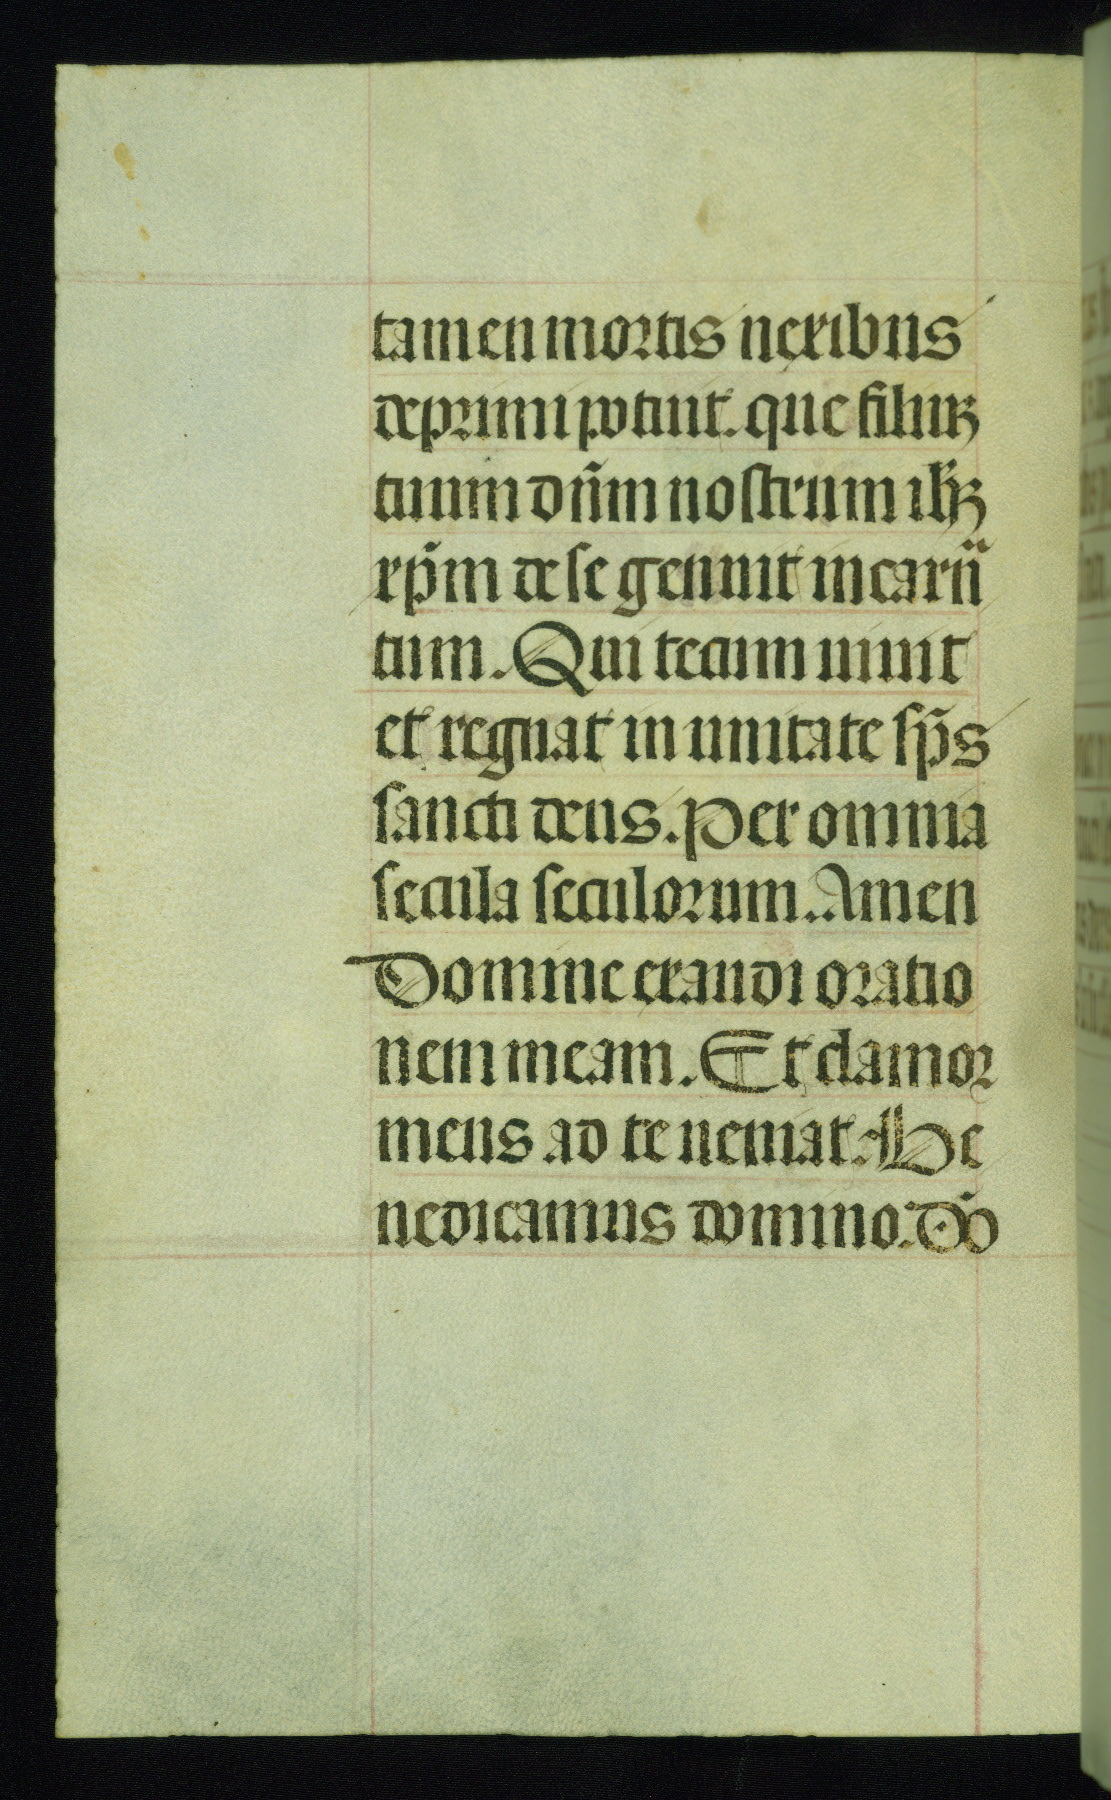 tamen mortis nexibus
deprimi potuit. que filiuꝫ
tuum dñm nostrum ihꝫ
xp̃m de se genuit incarnᷓ
tum. Qui tecum uiuit
et regnat in unitate sp̃s
sancti deus. Per omnia
secula seculorum. Amen
Domine exaudi oratio
nem meam. Et clamor
meus ad te ueniat. Be
nedicamus domino. Dõ